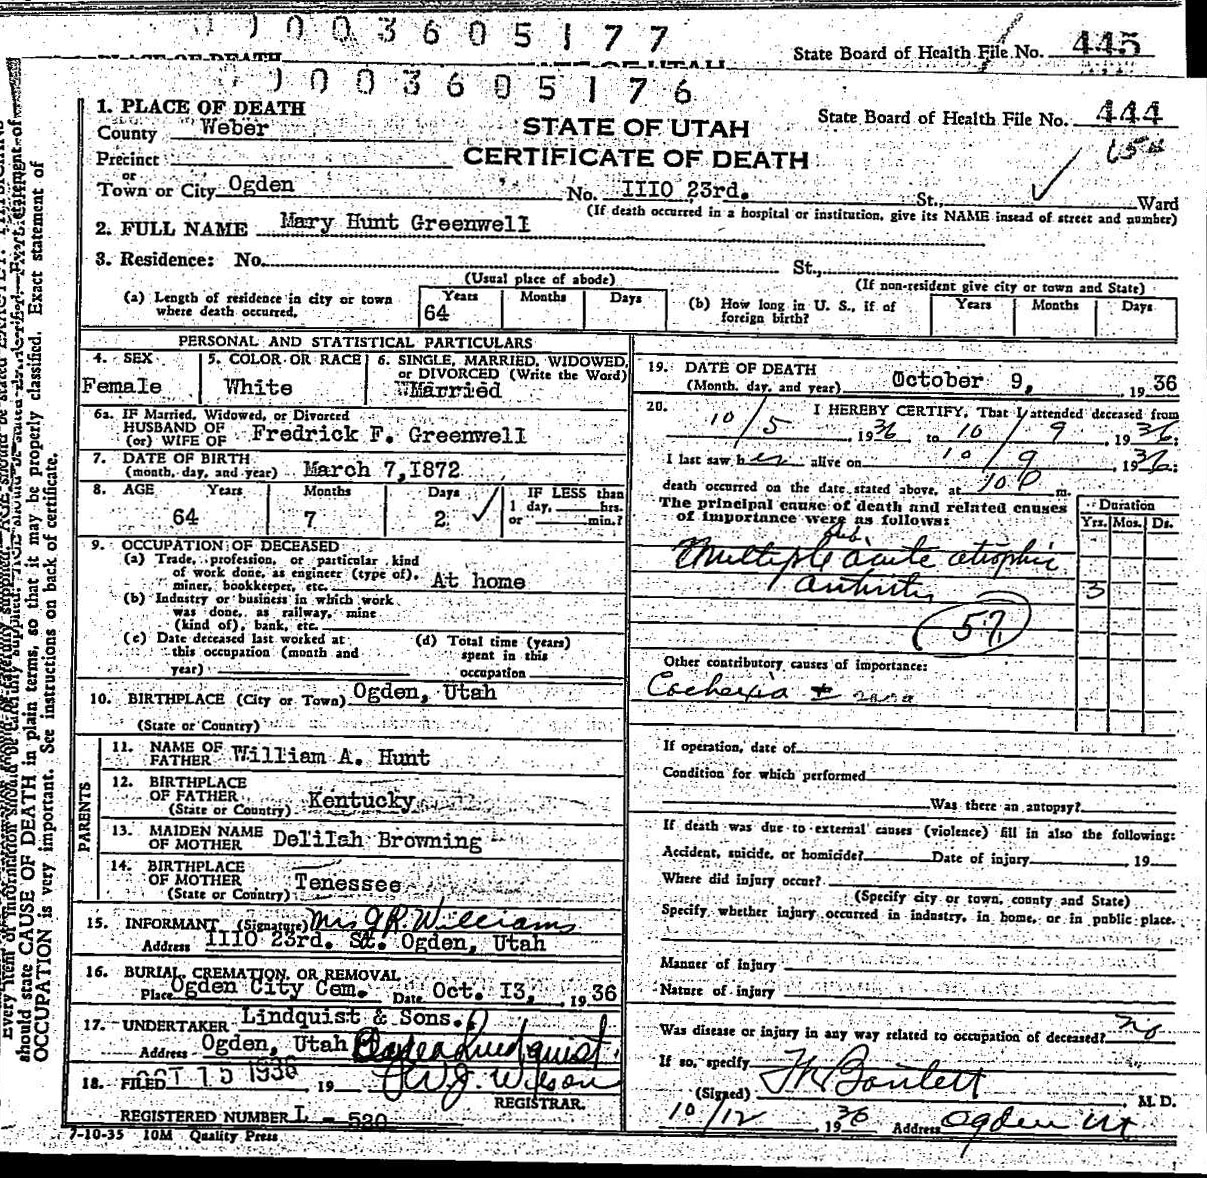 003605177
State Board of Health File No. 445
PLACE OF DEATH STATE OF UTAH
003605176
1. PLACE OF DEATH
State Board of Health File No. 444
County Weber
STATE OF UTAH
CERTIFICATE OF DEATH
Precinct
or
Town or City Ogden No. IIIO 23rd. St., Ward
(If death occurred in a hospital or institution, give its NAME insead of street and number)
2. FULL NAME Mary Hunt Greenwell
3. Residence: No. St.,
(Usual place of abode) (If non-resident give city or town and State)
(a) Length of residence in city or town where death occurred. Years 64 Months Days
(b) How long in U. S., if of foreign birth? Years Months Days
PERSONAL AND STATISTICAL PARTICULARS
4. SEX Female
5. COLOR OR RACE White
6. SINGLE, MARRIED, WIDOWED, or DIVORCED (Write the Word) Married
6a. IF Married, Widowed, or Divorced
HUSBAND OF
(or) WIFE OF Fredrick F. Greenwell
7. DATE OF BIRTH
(month, day, and year) March 7, 1872
8. AGE Years Months Days IF LESS than
1 day, hrs.
or min.?
64 7 2
9. OCCUPATION OF DECEASED
(a) Trade, profession, or particular kind
of work done, as engineer (type of),
miner, bookkeeper, etc. At home
(b) Industry or business in which work
was done, as railway, mine
(kind of), bank, etc.
(c) Date deceased last worked at
this occupation (month and
year)
(d) Total time (years)
spent in this
occupation
10. BIRTHPLACE (City or Town) Ogden, Utah
(State or Country)
PARENTS
11. NAME OF
FATHER William A. Hunt
12. BIRTHPLACE
OF FATHER
(State or Country) Kentucky
13. MAIDEN NAME
OF MOTHER Delilah Browning
14. BIRTHPLACE
OF MOTHER
(State or Country) Tenessee
15. INFORMANT (Signature) Mrs J R Williams
Address IIIO 23rd. St. Ogden, Utah
16. BURIAL, CREMATION, OR REMOVAL
Place Ogden City Cem. Date Oct. I3, 1936
17. UNDERTAKER Lindquist & Sons.
Address Ogden, Utah
18. FILED OCT 15 1936 19 W. J. Wilson
REGISTRAR.
REGISTERED NUMBER L - 530
7-10-35 10M Quality Press
19. DATE OF DEATH
(Month, day, and year) October 9, 1936
20. I HEREBY CERTIFY, That I attended deceased from
10/5, 1936 to 10/9, 1936;
I last saw her alive on 10/9, 1936;
death occurred on the date stated above, at 10 P m.
The principal cause of death and related causes
of importance were as follows:
Duration
Yrs. Mos. Ds.
sub
Multiple acute atrophic
arthritis 3
57
Other contributory causes of importance:
Cachexia +
If operation, date of
Condition for which performed
Was there an autopsy?
If death was due to external causes (violence) fill in also the following:
Accident, suicide, or homicide? Date of injury 19
Where did injury occur?
(Specify city or town, county and State)
Specify whether injury occurred in industry, in home, or in public place.
Manner of injury
Nature of injury
Was disease or injury in any way related to occupation of deceased? no
If so, specify
(Signed) M. D.
10/12 1936 Address Ogden Ut
should state CAUSE OF DEATH in plain terms, so that it may be properly classified. Exact statement of
OCCUPATION is very important. See instructions on back of certificate.